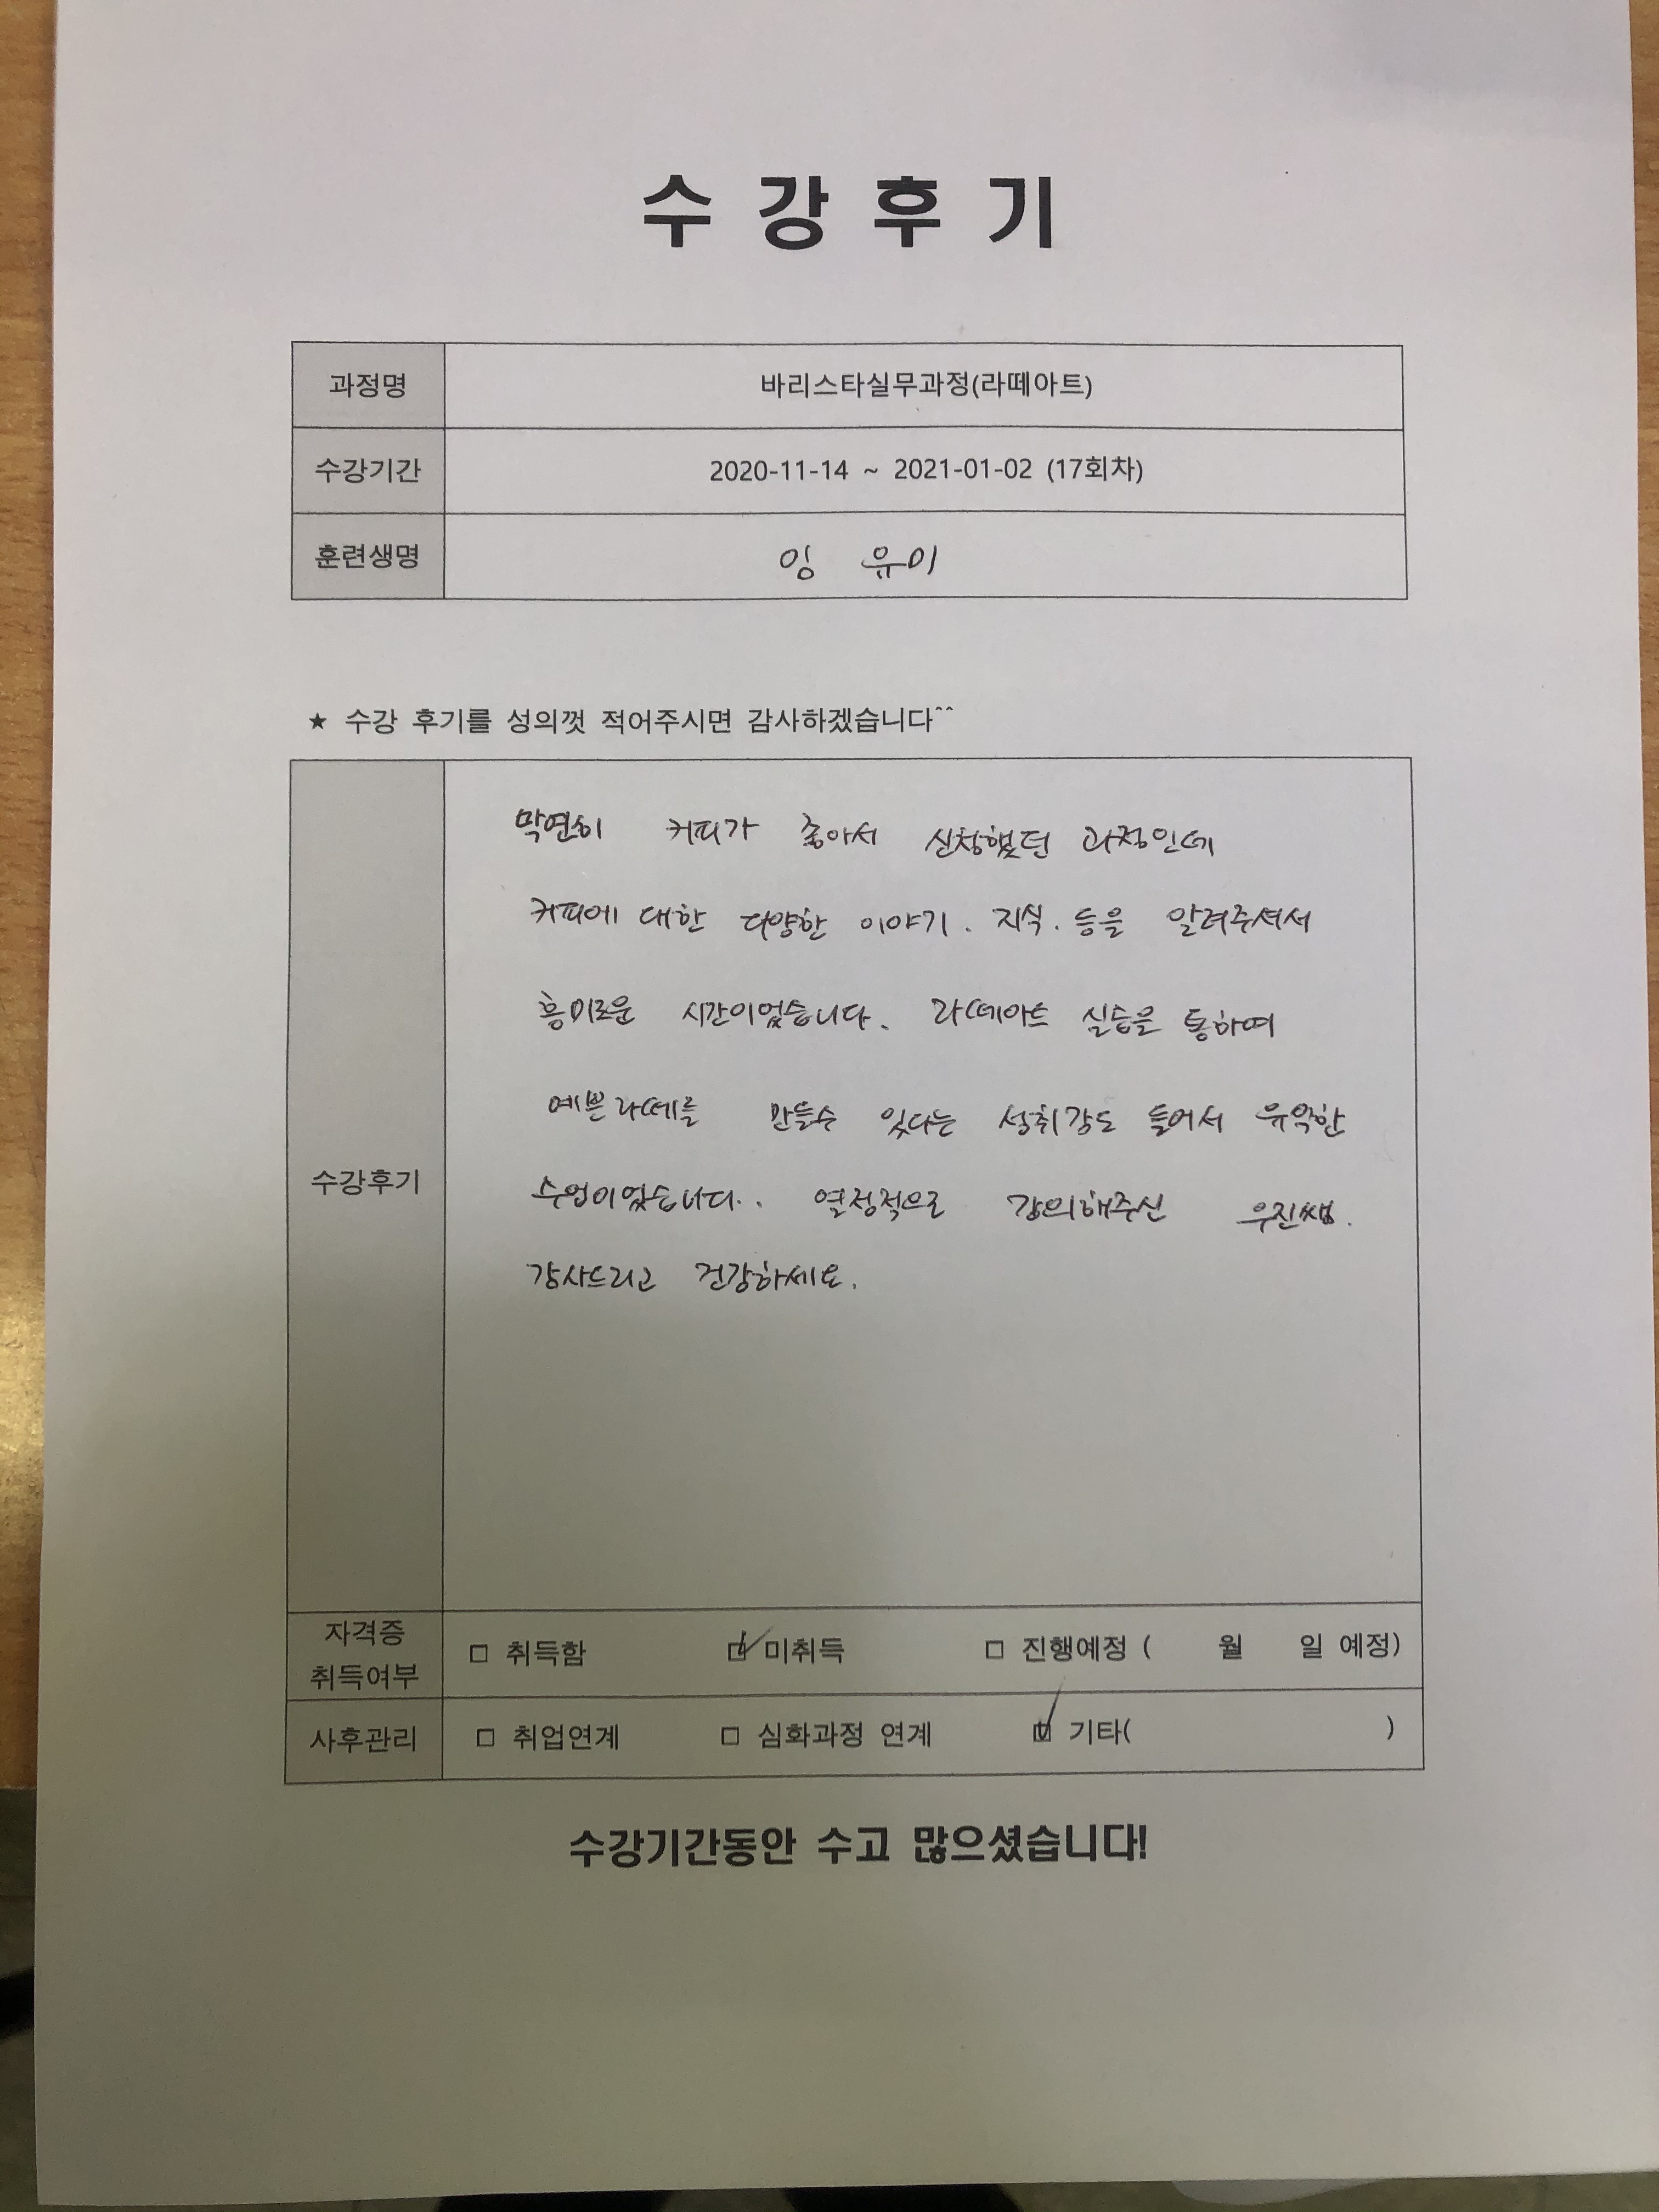 수강후기
과정명 바리스타실무과정(라떼아트)
수강기간 2020-11-14 ~ 2021-01-02 (17회차)
훈련생명 임 유미
★ 수강 후기를 성의껏 적어주시면 감사하겠습니다^^
막연히 커피가 좋아서 신청했던 과정인데
커피에 대한 다양한 이야기. 지식. 등을 알려주셔서
흥미로운 시간이었습니다. 라떼아트 실습을 통하여
예쁜라떼를 만들수 있다는 성취감도 들어서 유익한
수강후기
수업이었습니다.. 열정적으로 강의해주신 우진쌤.
감사드리고 건강하세요.
자격증
취득여부 □ 취득함 ☑ 미취득 □ 진행예정 ( 월 일 예정)
사후관리 □ 취업연계 □ 심화과정 연계 ☑ 기타( )
수강기간동안 수고 많으셨습니다!